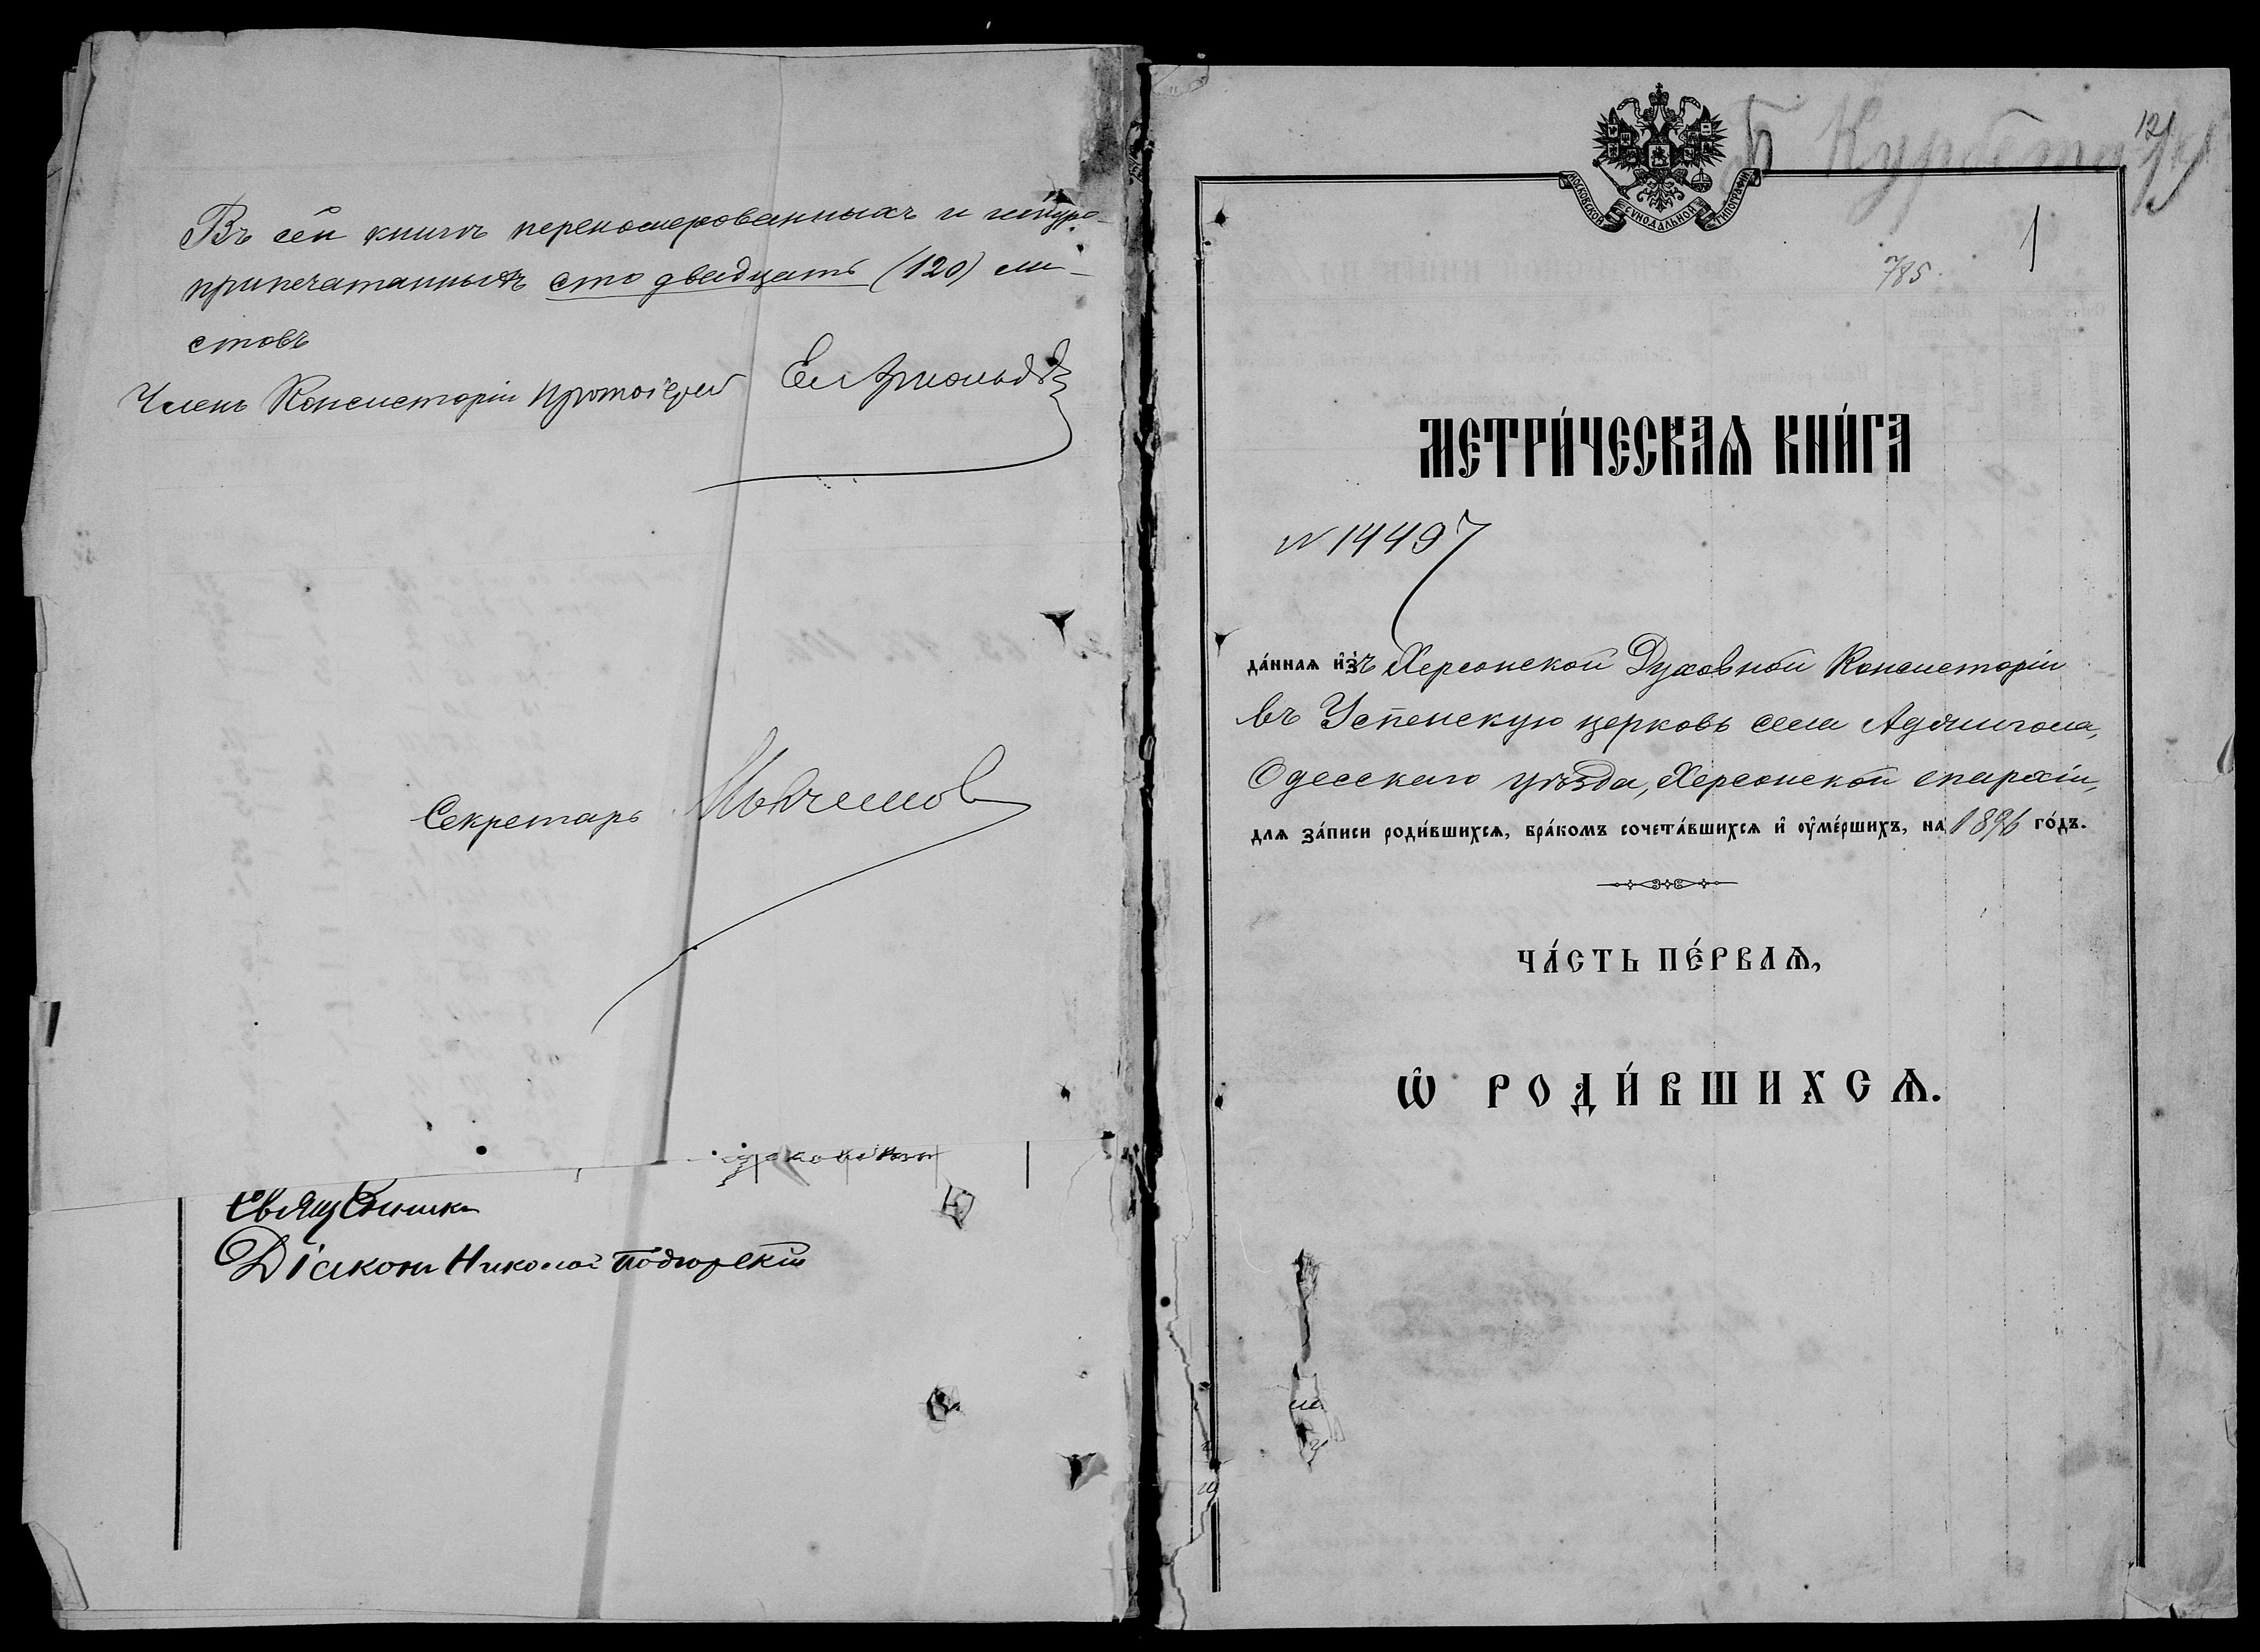 Въ сей книгѣ перенумерованныхъ и шнуро-
припечатанныхъ сто двадцать (120) ли-
стовъ
Членъ Консисторіи Протоіерей Ел Арнольдъ
Секретарь
Священникъ
Діаконъ Николай Подгорскій
МОСКОВСКОЙ СѴНОДАЛЬНОЙ ТИПОГРАФІИ
121
1
785.
МЕТРИ́ЧЕСКАѦ КНИ́ГА
№ 14497
да́ннаѧ и҆з̾ъ Херсонской Духовной Консисторіи
въ Успенскую церковь села Аджигола,
Одесскаго уѣзда, Херсонской епархіи,
длѧ за́писи роди́вшихсѧ, бра́комъ сочета́вшихсѧ и҆ ᲂу҆ме́ршихъ, на 1896 го́дъ.
ЧА́СТЬ ПЕ́РВАѦ,
Ѡ҆ РОДИ́ВШИХСѦ.